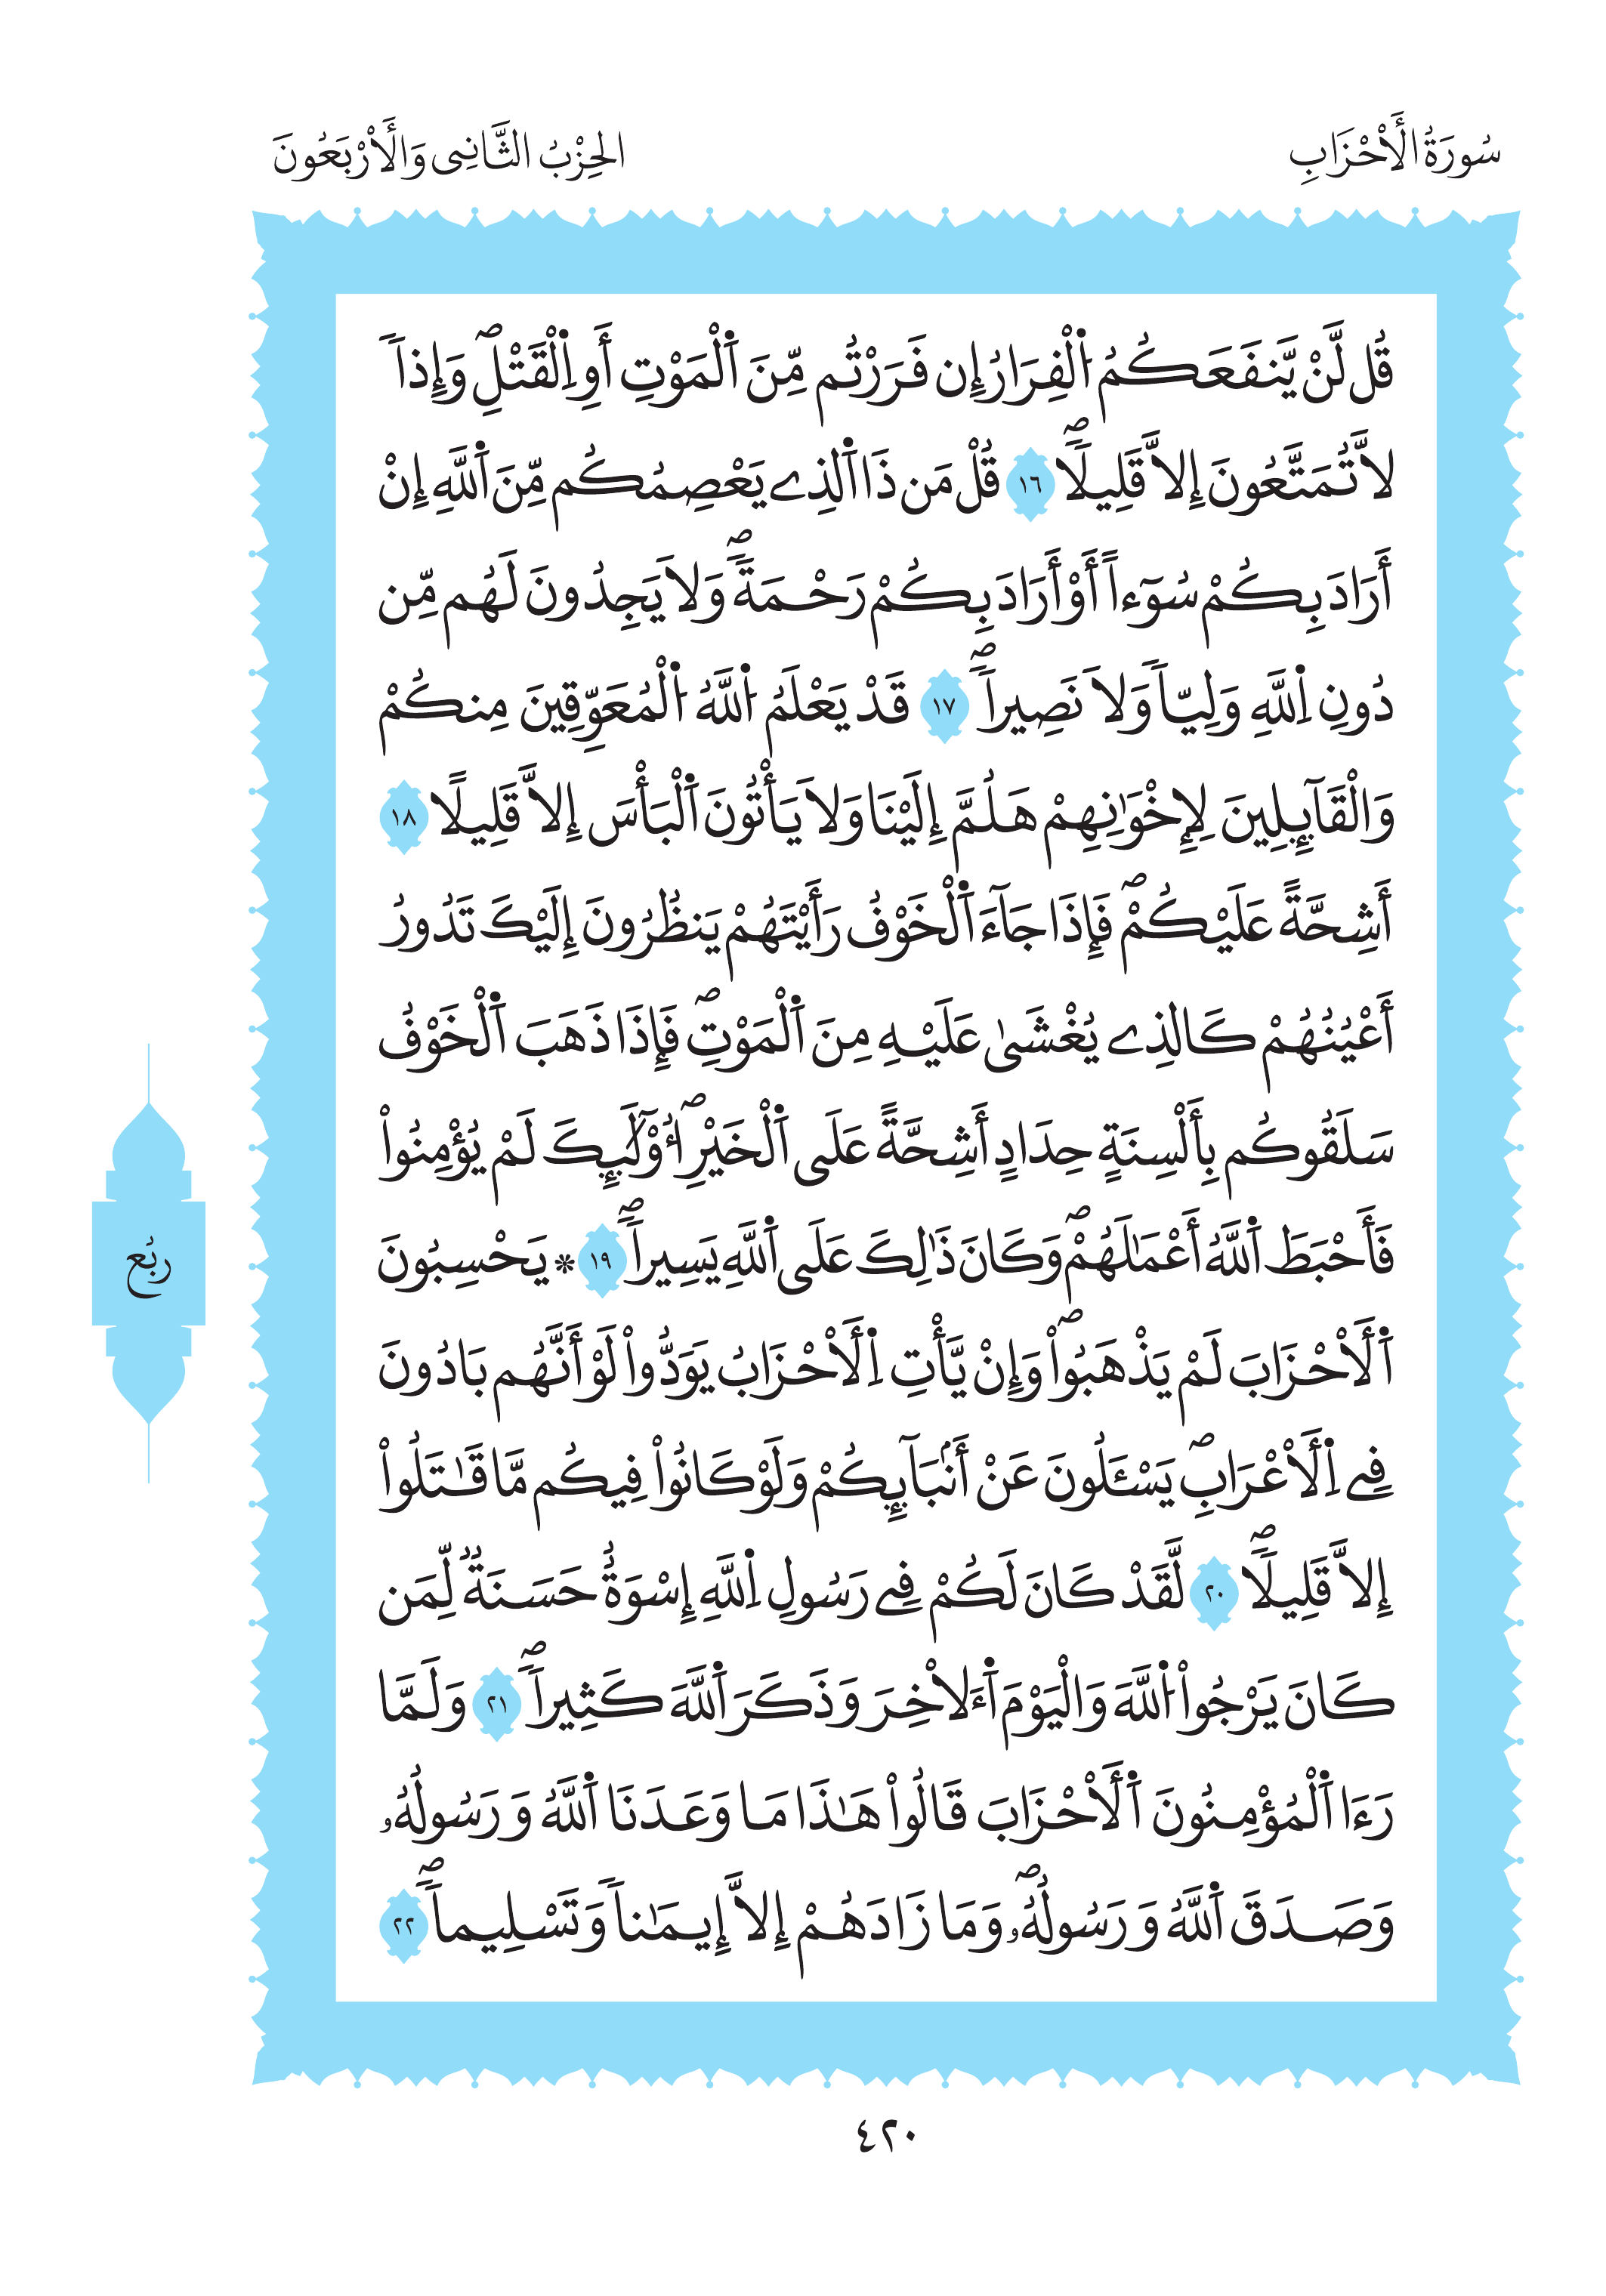 سُورَةُ الْأَحْزَابِ
الحِزْبُ الثَّانِى وَالْأَرْبَعُونَ
قُل لَّنْ يَّنفَعَكُمُ اُ۬لْفِرَارُ إِن فَرَرْتُم مِّنَ اَ۬لْمَوْتِ أَوِ اِ۬لْقَتْلِۖ وَإِذاٗ
لاَّ تُمَتَّعُونَ إِلاَّ قَلِيلاٗۖ ١٦ قُلْ مَن ذَا اَ۬لذِے يَعْصِمُكُم مِّنَ اَ۬للَّهِ إِنْ
أَرَادَ بِكُمْ سُوٓءاً أَوْ أَرَادَ بِكُمْ رَحْمَةٗۖ وَلاَ يَجِدُونَ لَهُم مِّن
دُونِ اِ۬للَّهِ وَلِيّاٗ وَلاَ نَصِيراٗۖ ١٧ قَدْ يَعْلَمُ اُ۬للَّهُ اُ۬لْمُعَوِّقِينَ مِنكُمْ
وَالْقَآئِلِينَ لِإِخْوَٰنِهِمْ هَلُمَّ إِلَيْنَا وَلاَ يَأْتُونَ اَ۬لْبَأْسَ إِلاَّ قَلِيلاً ١٨
أَشِحَّةً عَلَيْكُمْۖ فَإِذَا جَآءَ اَ۬لْخَوْفُ رَأَيْتَهُمْ يَنظُرُونَ إِلَيْكَ تَدُورُ
أَعْيُنُهُمْ كَالذِے يُغْشَىٰ عَلَيْهِ مِنَ اَ۬لْمَوْتِۖ فَإِذَا ذَهَبَ اَ۬لْخَوْفُ
سَلَقُوكُم بِأَلْسِنَةٍ حِدَادٍ أَشِحَّةً عَلَى اَ۬لْخَيْرِۖ أُوْلَٰٓئِكَ لَمْ يُؤْمِنُواْ
فَأَحْبَطَ اَ۬للَّهُ أَعْمَٰلَهُمْۖ وَكَانَ ذَٰلِكَ عَلَى اَ۬للَّهِ يَسِيراٗۖ ١٩ * يَحْسِبُونَ
اَ۬لْأَحْزَابَ لَمْ يَذْهَبُواْۖ وَإِنْ يَّأْتِ اِ۬لْأَحْزَابُ يَوَدُّواْ لَوْ أَنَّهُم بَادُونَ
فِے اِ۬لْأَعْرَابِۖ يَسْـَٔلُونَ عَنْ أَنۢبَآئِكُمْ وَلَوْ كَانُواْ فِيكُم مَّا قَٰتَلُواْ
إِلاَّ قَلِيلاٗۖ ٢٠ لَّقَدْ كَانَ لَكُمْ فِے رَسُولِ اِ۬للَّهِ إِسْوَةٌ حَسَنَةٞ لِّمَن
كَانَ يَرْجُواْ اُ۬للَّهَ وَالْيَوْمَ اَ۬لْأٓخِرَ وَذَكَرَ اَ۬للَّهَ كَثِيراٗۖ ٢١ وَلَمَّا
رَءَا اَ۬لْمُؤْمِنُونَ اَ۬لْأَحْزَابَ قَالُواْ هَٰذَا مَا وَعَدَنَا اَ۬للَّهُ وَرَسُولُهُۥ
وَصَدَقَ اَ۬للَّهُ وَرَسُولُهُۥۖ وَمَا زَادَهُمْ إِلاَّ إِيمَٰناٗ وَتَسْلِيماٗۖ ٢٢
ربُع
٤٢٠